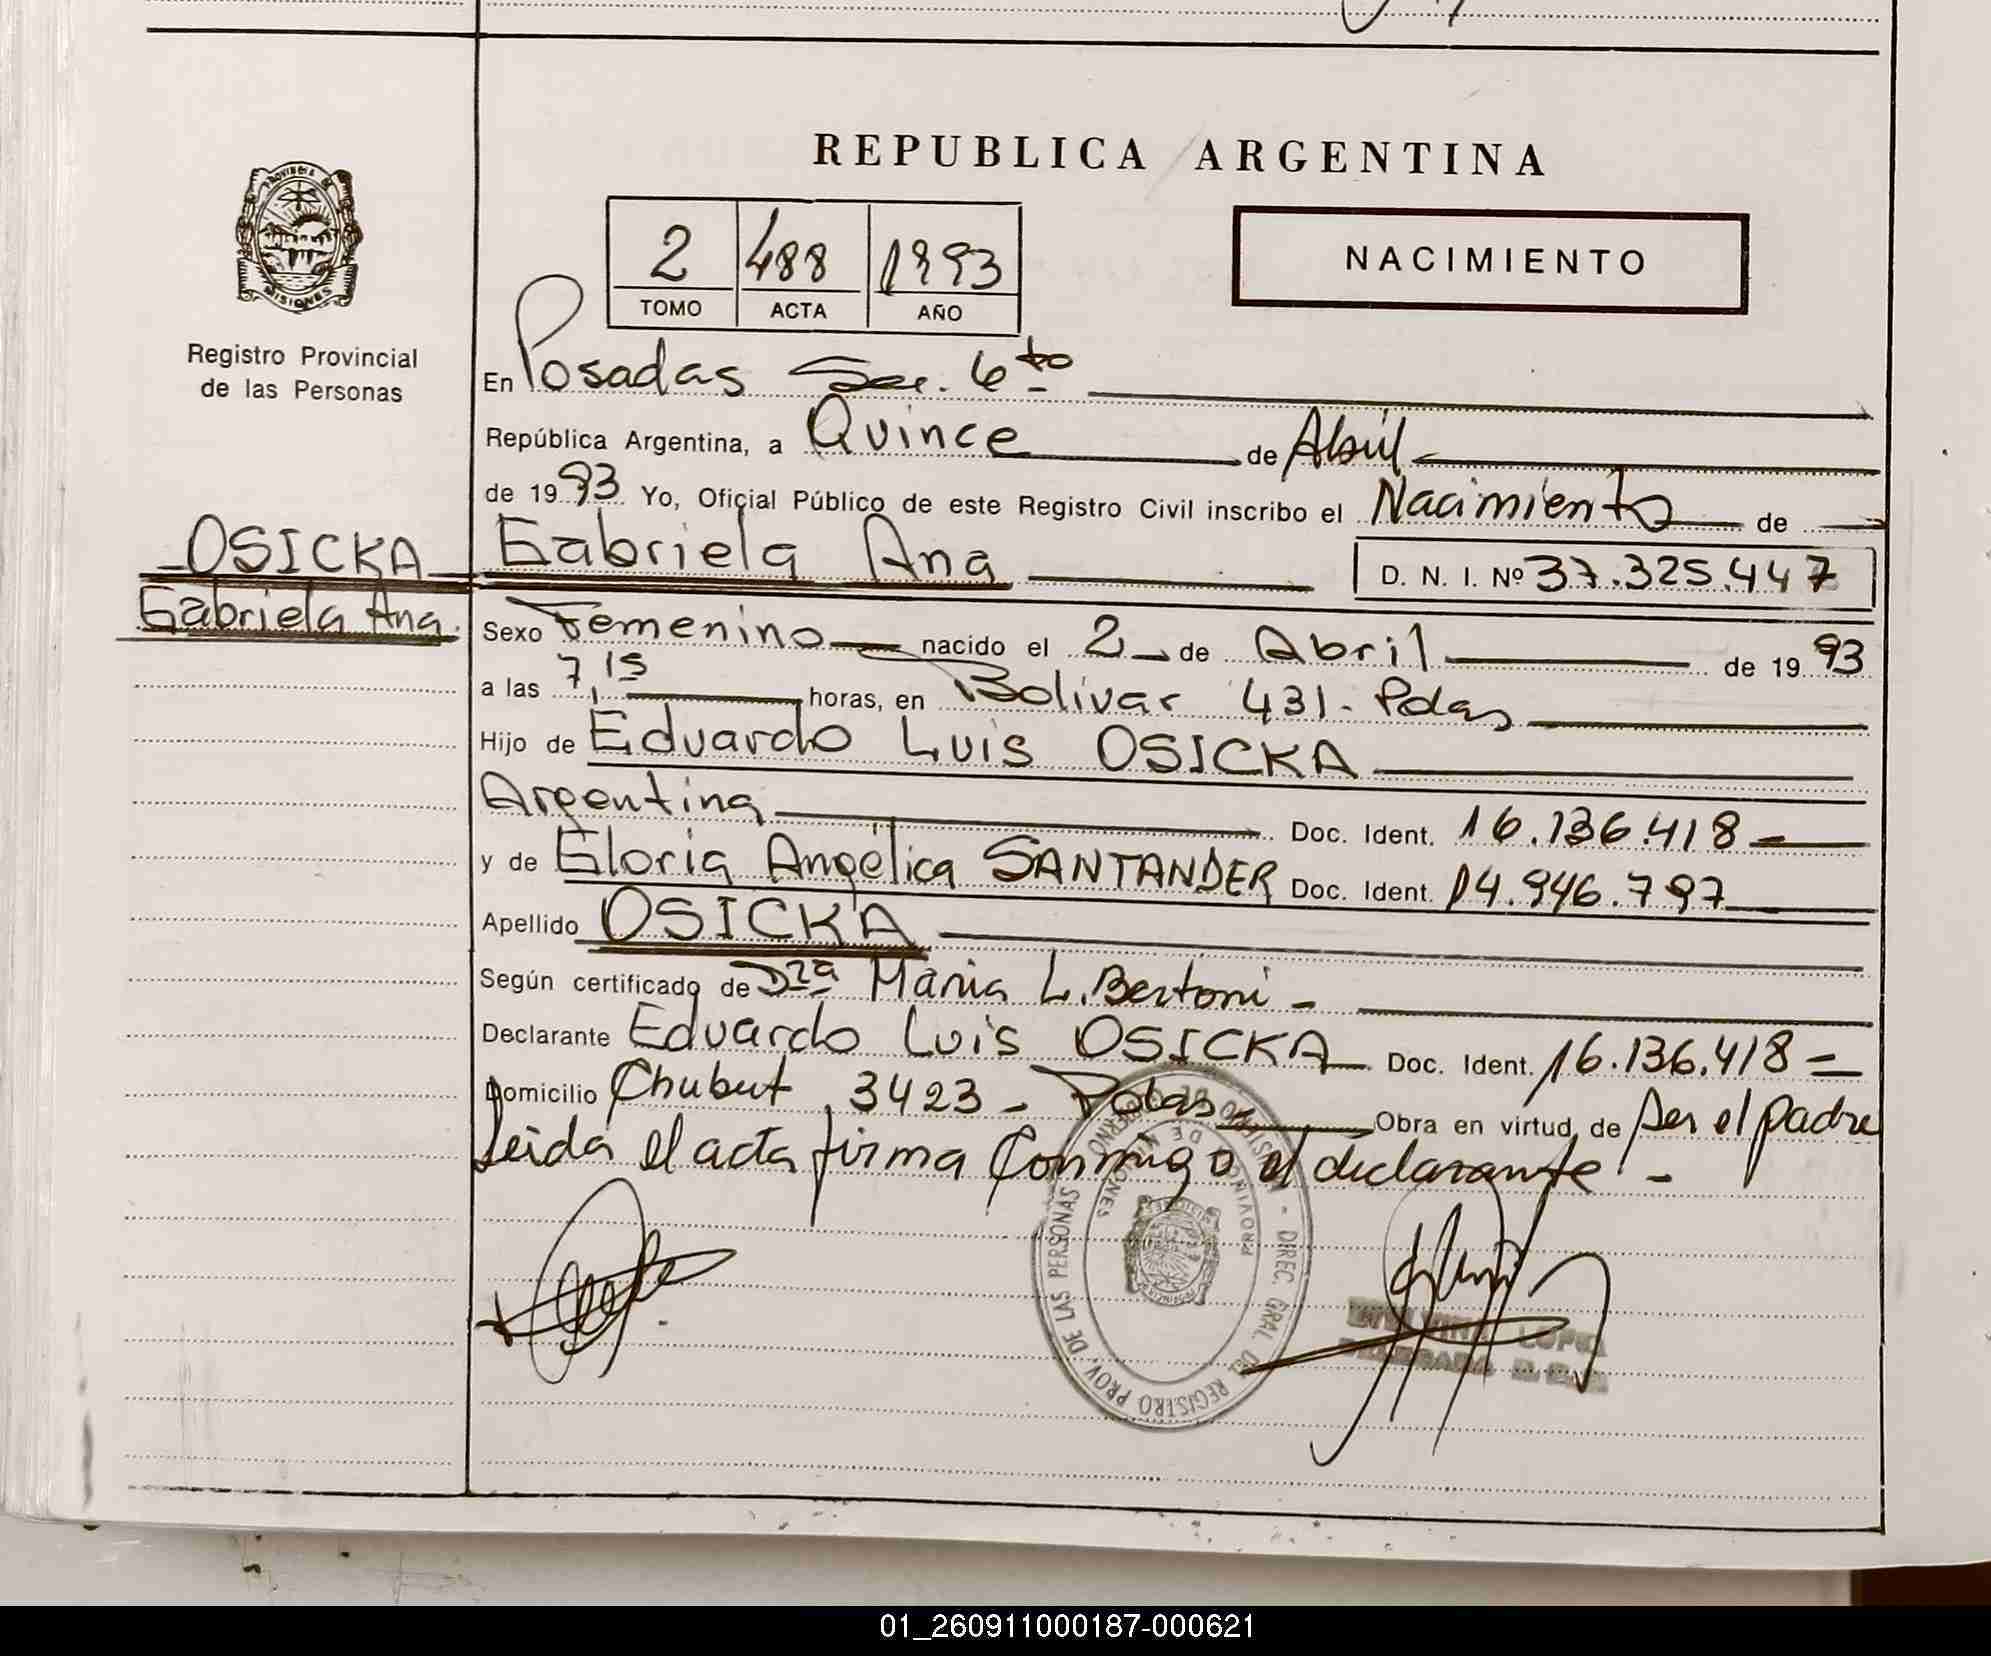 REPUBLICA ARGENTINA
PROVINCIA DE
MISIONES
Registro Provincial
de las Personas
2 488 1993
TOMO ACTA AÑO
NACIMIENTO
En Posadas Sec. 6to
República Argentina, a Quince de Abril
de 1993 Yo, Oficial Público de este Registro Civil inscribo el Nacimiento de
OSICKA
Gabriela Ana
Gabriela Ana D. N. I. Nº 37.325.447
Sexo Femenino nacido el 2 de Abril de 1993
a las 7,15 horas, en Bolivar 431 - Pdas
Hijo de Eduardo Luis OSICKA
Argentina Doc. Ident. 16.136.418
y de Gloria Angélica SANTANDER Doc. Ident. 14.946.797
Apellido OSICKA
Según certificado de Dra Maria L. Bertoni -
Declarante Eduardo Luis OSICKA Doc. Ident. 16.136.418
Domicilio Chubut 3423 - Pdas - Obra en virtud de ser el padre
Leida el acta firma conmigo el declarante -
DIREC. GRAL. DEL REGISTRO PROV. DE LAS PERSONAS
PROVINCIA DE MISIONES
LOPEZ
01_260911000187-000621